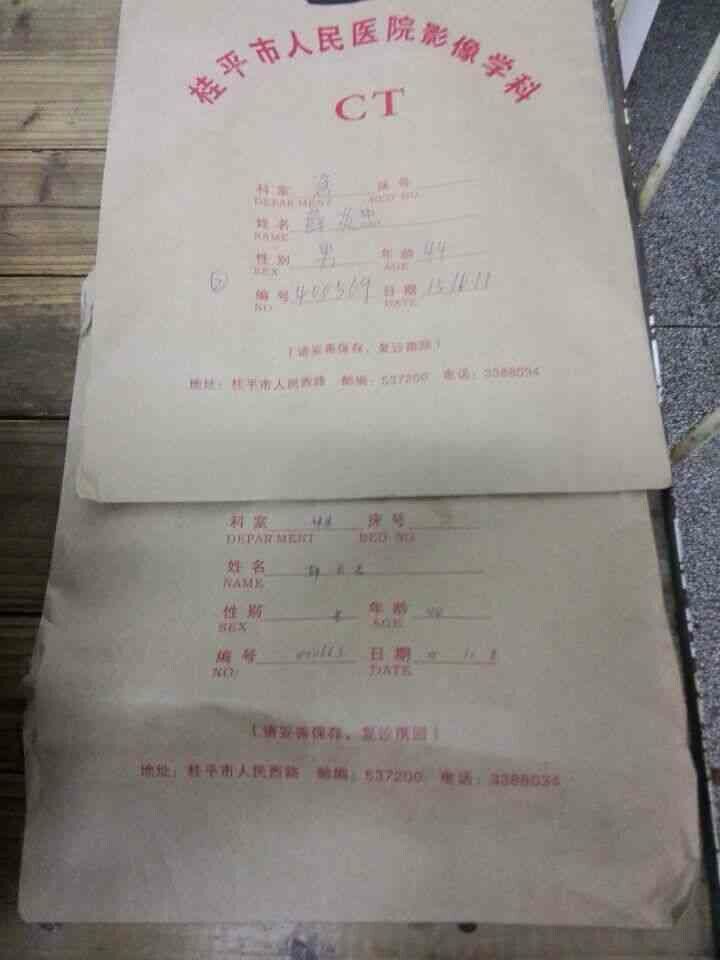 桂平市人民医院影像学科
CT
科室 床号
DEPARTMENT BED NO
姓名
NAME
性别 男 年龄 44
SEX AGE
编号 日期
NO DATE
(请妥善保存,复诊携回)
地址:桂平市人民西路 邮编:537200 电话:3388034
科室 床号
DEPARTMENT BED NO
姓名
NAME
性别 年龄
SEX AGE
编号 日期
NO DATE
(请妥善保存,复诊携回)
地址:桂平市人民西路 邮编:537200 电话:3388034